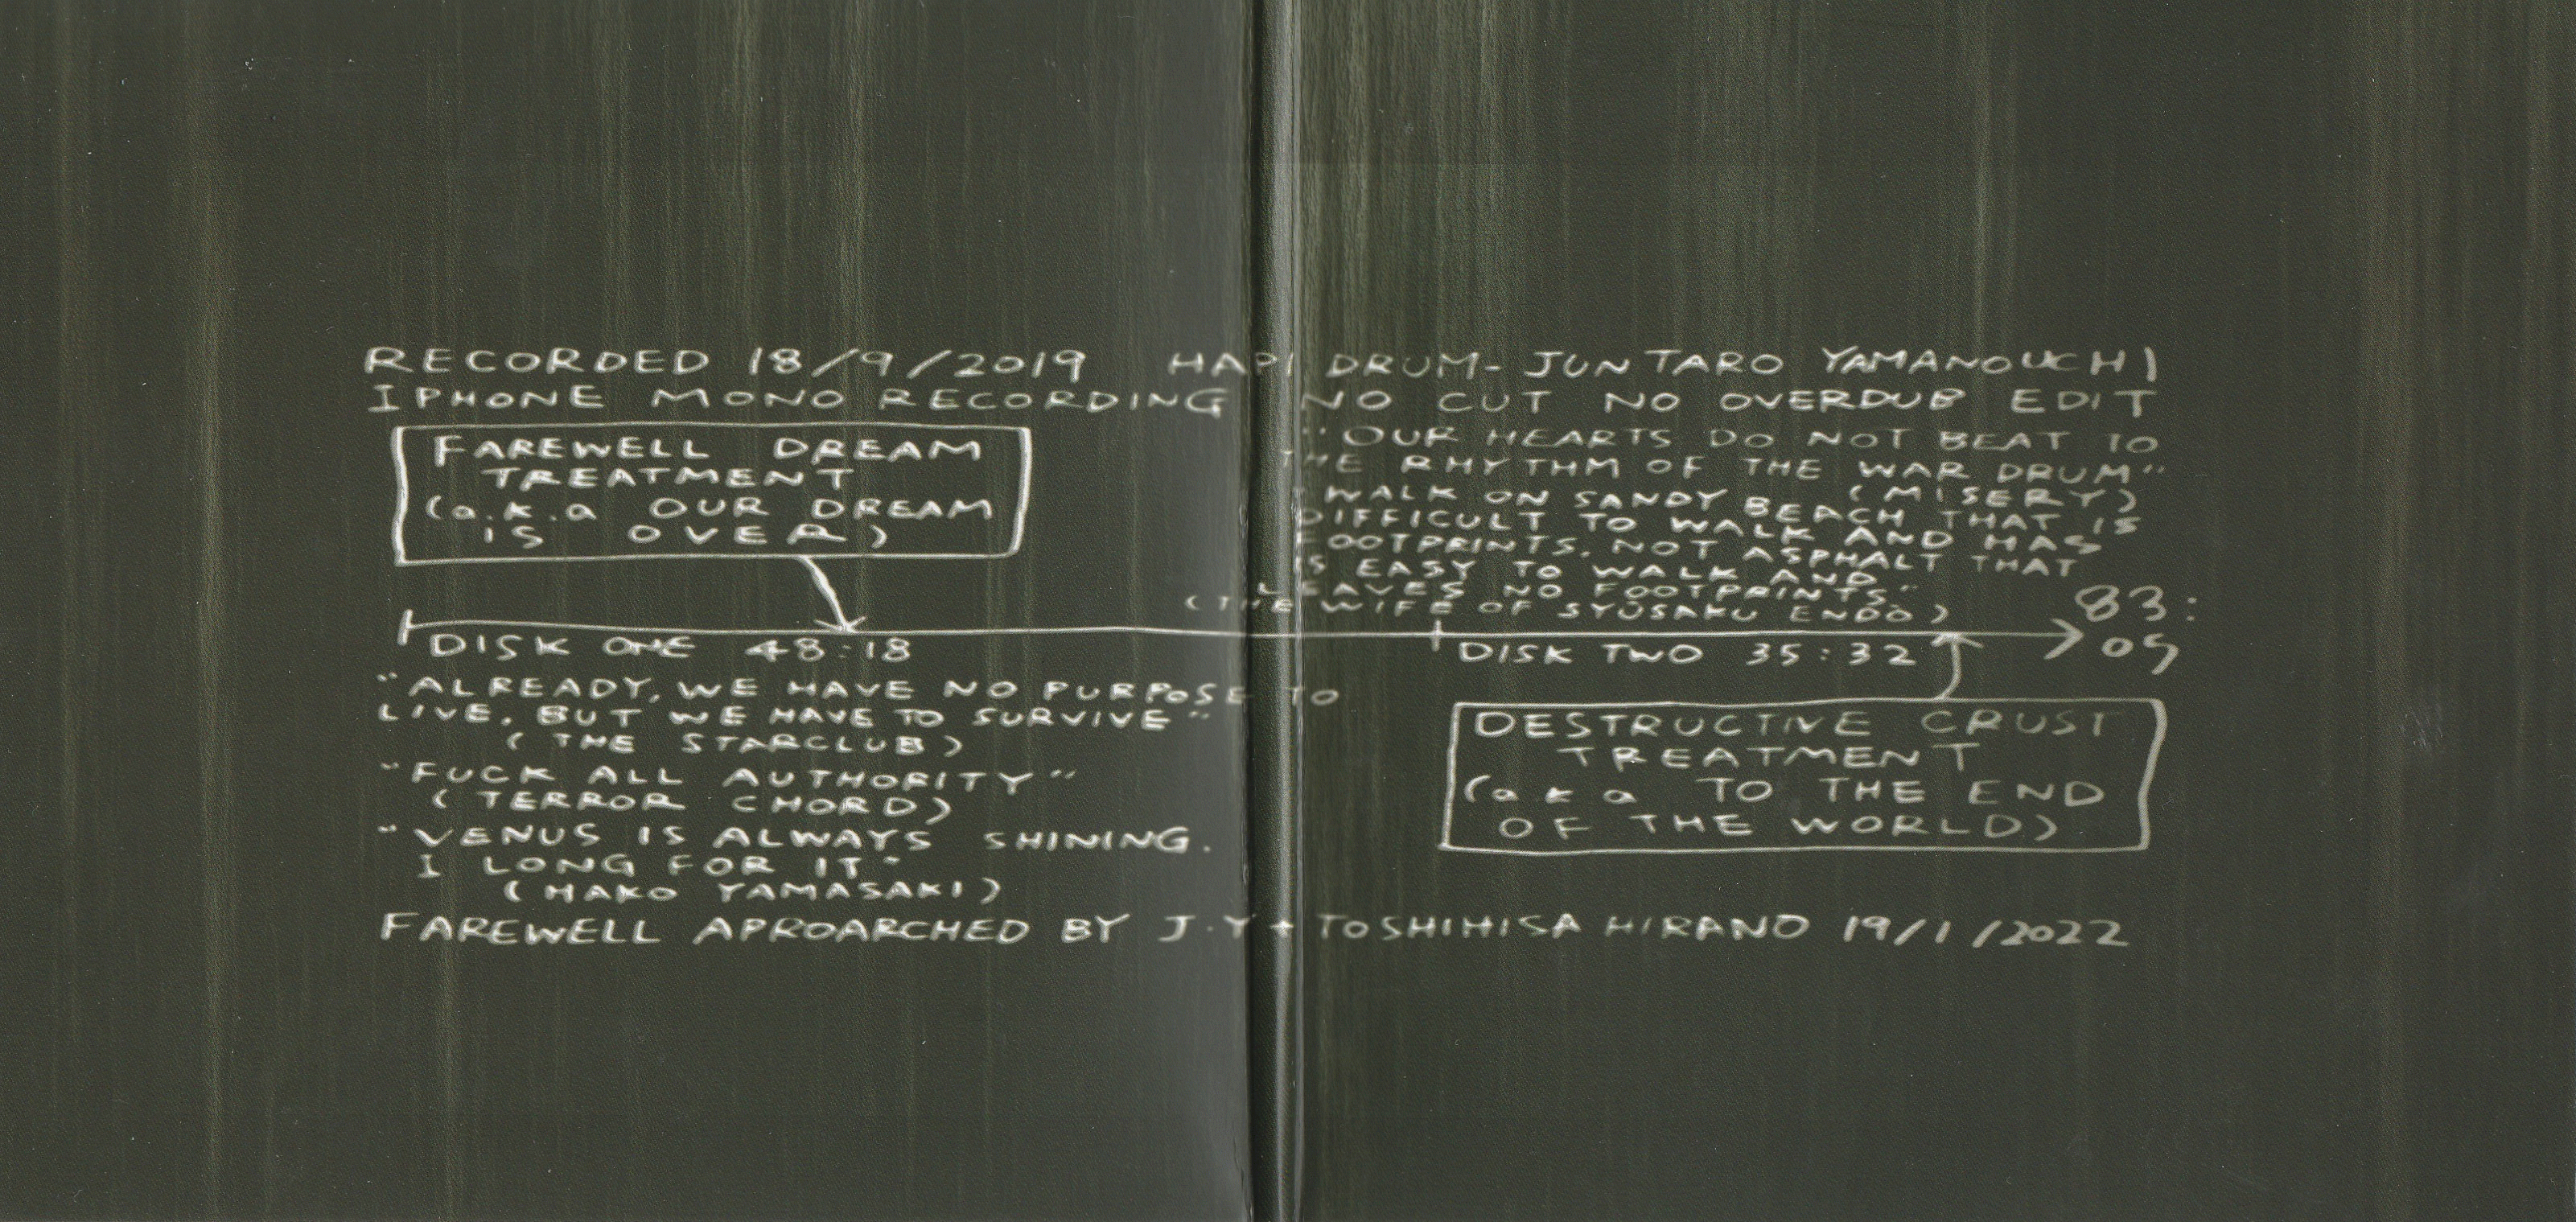 RECORDED 18/9/2019 HAPI DRUM- JUNTARO YAMANOUCHI
IPHONE MONO RECORDING NO CUT NO OVERDUB EDIT
FAREWELL DREAM
TREATMENT
(a.k.a OUR DREAM
IS OVER)
"OUR HEARTS DO NOT BEAT TO
THE RHYTHM OF THE WAR DRUM"
(MISERY)
"WALK ON SANDY BEACH THAT IS
DIFFICULT TO WALK AND HAS
FOOTPRINTS. NOT ASPHALT THAT
IS EASY TO WALK AND
LEAVES NO FOOTPRINTS."
(THE WIFE OF SYUSAKU ENDO)
83:
05
DISK ONE 48:18
DISK TWO 35:32
"ALREADY, WE HAVE NO PURPOSE TO
LIVE. BUT WE HAVE TO SURVIVE"
(THE STARCLUB)
"FUCK ALL AUTHORITY"
(TERROR CHORD)
"VENUS IS ALWAYS SHINING.
I LONG FOR IT"
(HAKO YAMASAKI)
DESTRUCTIVE CRUST
TREATMENT
(a k a TO THE END
OF THE WORLD)
FAREWELL APROARCHED BY J.Y + TOSHIHISA HIRANO 19/1/2022